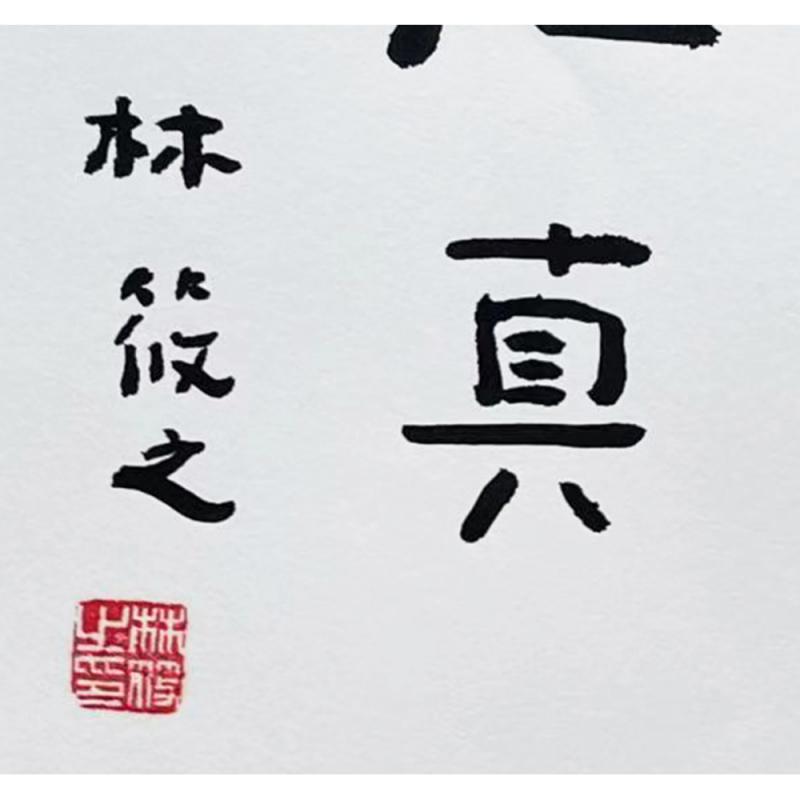 真
林筱之
林筱之印